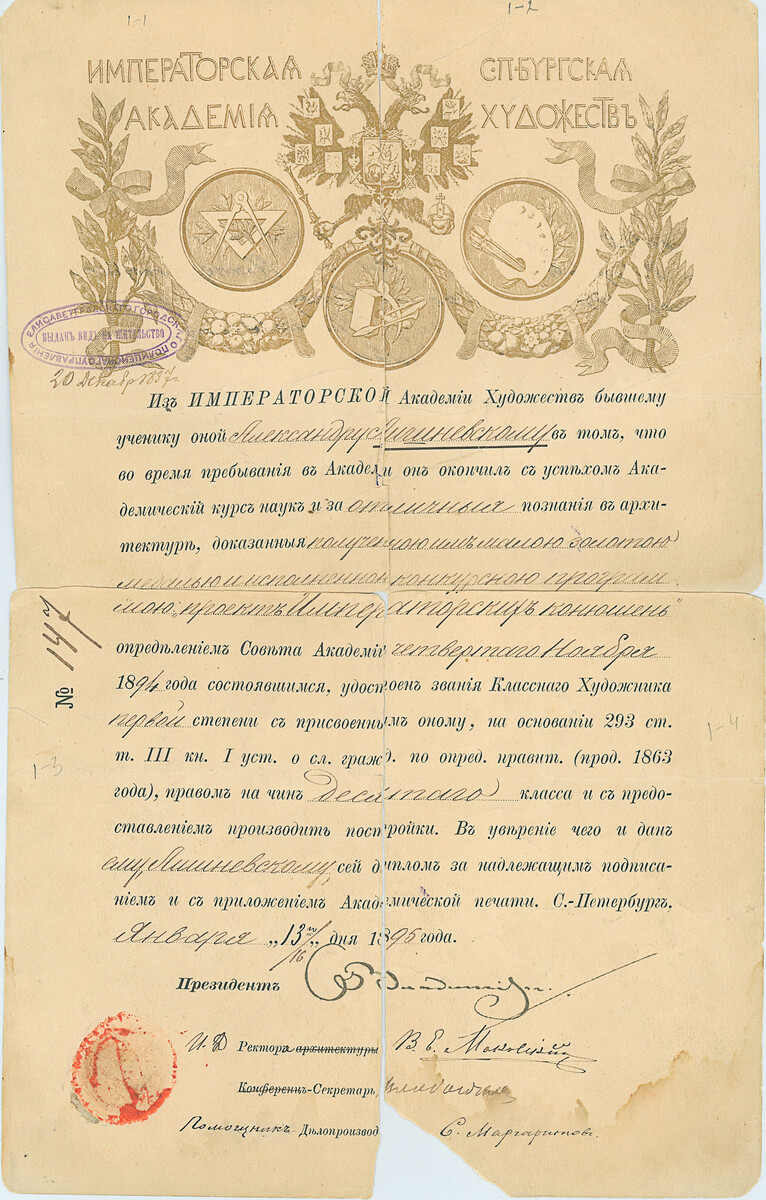 1-1
1-2
ИМПЕРАТОРСКАЯ С.-П-БУРГСКАЯ
АКАДЕМІЯ ХУДОЖЕСТВЪ
ЕЛИСАВЕТГРАДСКАГО ГОРОДСКОГО ПОЛИЦЕЙСКАГО УПРАВЛЕНІЯ
ВЫДАНЪ ВИДЪ НА ЖИТЕЛЬСТВО
20 Декабр 1897 г
Изъ ИМПЕРАТОРСКОЙ Академіи Художествъ бывшему
ученику оной Александру Лишневскому въ томъ, что
во время пребыванія въ Академіи онъ окончилъ съ успѣхомъ Ака-
демическій курсъ наукъ и за отличныя познанія въ архи-
тектурѣ, доказанныя полученною имъ малою золотою
медалью и исполненною конкурсною програм-
мою: „проектъ Императорскихъ конюшень"
опредѣленіемъ Совѣта Академіи четвертаго Ноября
1894 года состоявшимся, удостоенъ званія Класснаго Художника
первой степени съ присвоеннымъ оному, на основаніи 293 ст.
т. III кн. I уст. о сл. гражд. по опред. правит. (прод. 1863
года), правомъ на чинъ десятаго класса и съ предо-
ставленіемъ производить постройки. Въ увѣреніе чего и данъ
ему, Лишневскому, сей дипломъ за надлежащимъ подписа-
ніемъ и съ приложеніемъ Академической печати. С.-Петербургъ,
Января „13/16" дня 1895 года.
№ 147
1-3
1-4
Президентъ Владиміръ.
И. Д Ректора архитектуры В. Е. Маковскій
Конференцъ-Секретарь
Помощникъ Дѣлопроизвод С. Маргаритовъ.